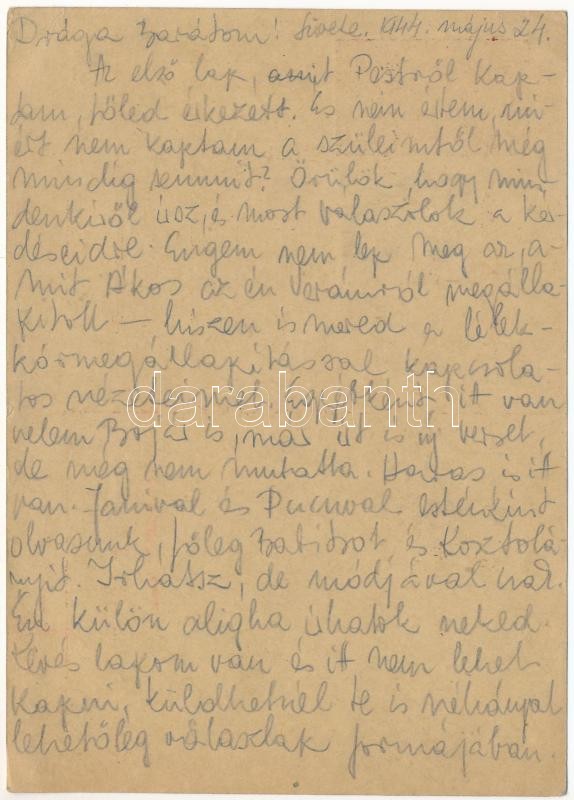 Drága Barátom! 1944. május 24.
Az első lap, amit Pestről kap-
tam, tőled érkezett. És nem értem, mi-
ért nem kaptam a szüleimtől még
mindig semmit? Örülök hogy min-
denkiről írsz, és most válaszolok a kér-
déseidre. Engem nem lep meg az, a-
mit Ákos az én verámról megálla-
pított – hiszen ismered a lélek-
kórmegállapítással kapcsola-
tos nézeteimet. itt van
velem is, már írt is új verset,
de még nem mutatta. is itt
van. Janival és esténkint
olvasunk, főleg Babitsot és Kosztolá-
nyit. Írhatsz, de módjával csak.
Én külön aligha írhatok neked.
Kevés lapom van és itt nem lehet
kapni, küldhetnél te is néhányat
lehetőleg válaszlap formájában.
darabanth